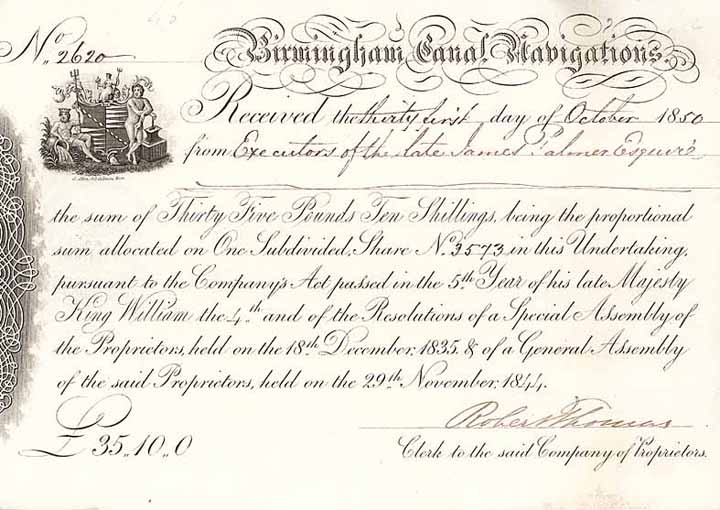 No. 2620
Birmingham Canal Navigations.
Received the thirty first day of October 1850
from Executors of the late James Palmer Esquire
the sum of Thirty Five Pounds Ten Shillings, being the proportional
sum allocated on One Subdivided Share No. 3573 in this Undertaking,
pursuant to the Company's Act passed in the 5th Year of his late Majesty
King William the 4th and of the Resolutions of a Special Assembly of
the Proprietors, held on the 18th December, 1835. & of a General Assembly
of the said Proprietors, held on the 29th November, 1844.
£ 35,,10,,0
Robert Thomas
Clerk to the said Company of Proprietors.